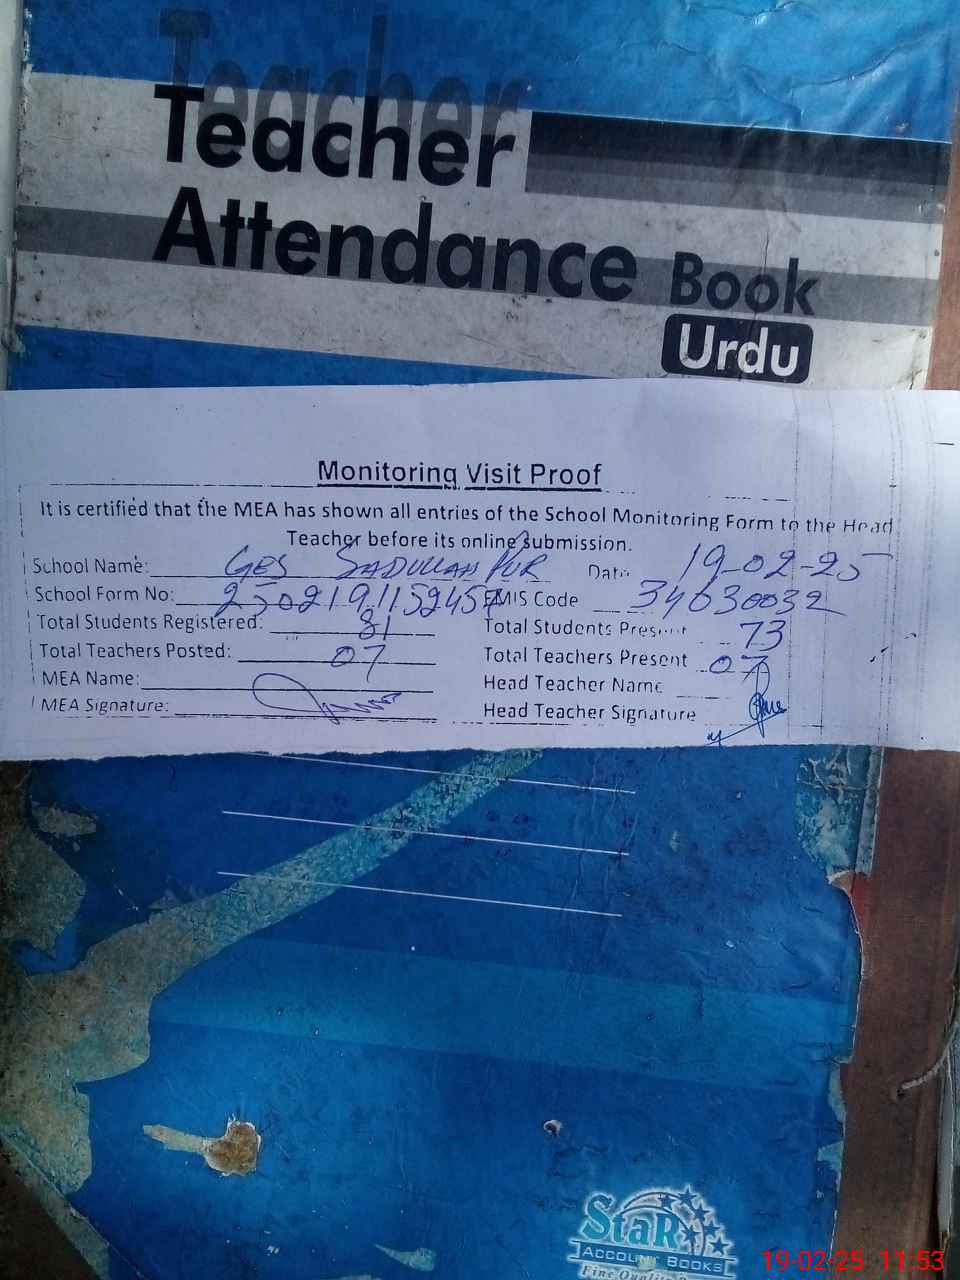 Teacher
Attendance Book
Urdu
Monitoring Visit Proof
It is certified that the MEA has shown all entries of the School Monitoring Form to the Head
Teacher before its online submission.
School Name: GES SADULLAH PUR Date 19-02-25
School Form No: EMIS Code 34030032
Total Students Registered: 81 Total Students Present 73
Total Teachers Posted: 07 Total Teachers Present 07
MEA Name: Head Teacher Name
MEA Signature: Head Teacher Signature
StaR
ACCOUNT BOOKS
Fine Quality
19-02-25 11:53